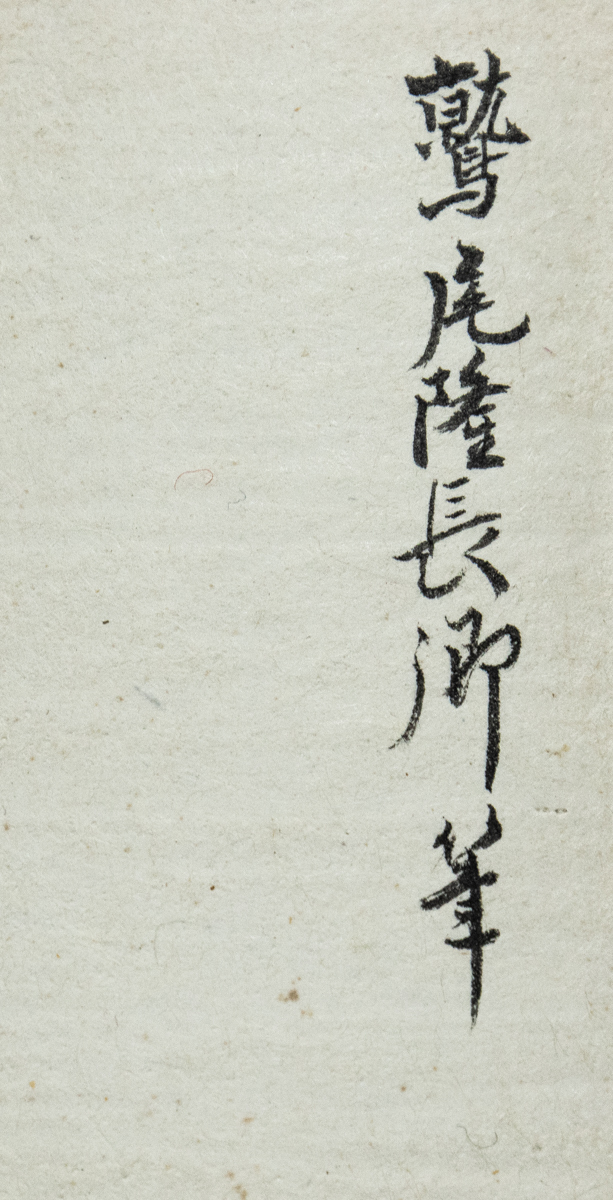 鷲尾隆長卿筆